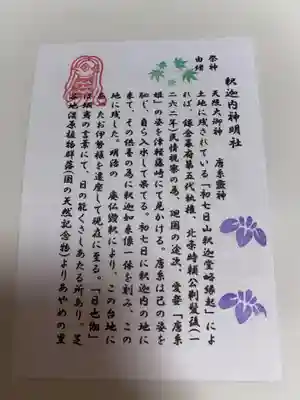 釈迦内神明社
祭神　天照大御神　唐糸霊神
由緒
土地に残されている「初七日山釈迦堂略縁起」によ
れば、鎌倉幕府第五代執権、北条時頼公剃髪後(一
二六二年)民情視察の為、廻国の途次、愛妾「唐糸
姫」の姿を津軽藤崎にて見かける。唐糸は己の姿を
恥じ、自ら入水して果てる。初七日に釈迦内の地に
来て、その供養の為に釈迦如来像一体を刻み、この
地に残した。明治の廃仏毀釈により、この台地に
あたお伊勢様を遷座して現在に至る。「日也伽」
は蝦夷の言葉にて、日の能くさしあたる所あり。芝
谷地湿原植物群落(国の天然記念物)よりあやめの里